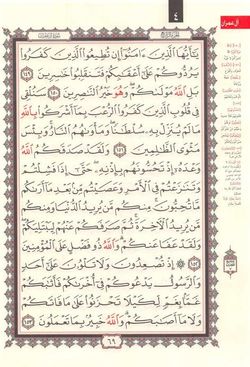 آل عمران
٤
يَٰٓأَيُّهَا ٱلَّذِينَ ءَامَنُوٓا۟ إِن تُطِيعُوا۟ ٱلَّذِينَ كَفَرُوا۟
يَرُدُّوكُمْ عَلَىٰٓ أَعْقَٰبِكُمْ فَتَنقَلِبُوا۟ خَٰسِرِينَ ١٤٩
بَلِ ٱللَّهُ مَوْلَىٰكُمْ وَهُوَ خَيْرُ ٱلنَّٰصِرِينَ ١٥٠ سَنُلْقِى
فِى قُلُوبِ ٱلَّذِينَ كَفَرُوا۟ ٱلرُّعْبَ بِمَآ أَشْرَكُوا۟ بِٱللَّهِ
مَا لَمْ يُنَزِّلْ بِهِۦ سُلْطَٰنًا وَمَأْوَىٰهُمُ ٱلنَّارُ وَبِئْسَ
مَثْوَى ٱلظَّٰلِمِينَ ١٥١ وَلَقَدْ صَدَقَكُمُ ٱللَّهُ
وَعْدَهُۥٓ إِذْ تَحُسُّونَهُم بِإِذْنِهِۦ حَتَّىٰٓ إِذَا فَشِلْتُمْ
وَتَنَٰزَعْتُمْ فِى ٱلْأَمْرِ وَعَصَيْتُم مِّنۢ بَعْدِ مَآ أَرَىٰكُم
مَّا تُحِبُّونَ مِنكُم مَّن يُرِيدُ ٱلدُّنْيَا وَمِنكُم
مَّن يُرِيدُ ٱلْءَاخِرَةَ ثُمَّ صَرَفَكُمْ عَنْهُمْ لِيَبْتَلِيَكُمْ
وَلَقَدْ عَفَا عَنكُمْ وَٱللَّهُ ذُو فَضْلٍ عَلَى ٱلْمُؤْمِنِينَ
١٥٢ إِذْ تُصْعِدُونَ وَلَا تَلْوُۥنَ عَلَىٰٓ أَحَدٍ
وَٱلرَّسُولُ يَدْعُوكُمْ فِىٓ أُخْرَىٰكُمْ فَأَثَٰبَكُمْ
غَمًّۢا بِغَمٍّ لِّكَيْلَا تَحْزَنُوا۟ عَلَىٰ مَا فَاتَكُمْ
وَلَا مَآ أَصَٰبَكُمْ وَٱللَّهُ خَبِيرٌۢ بِمَا تَعْمَلُونَ ١٥٣
٦٩